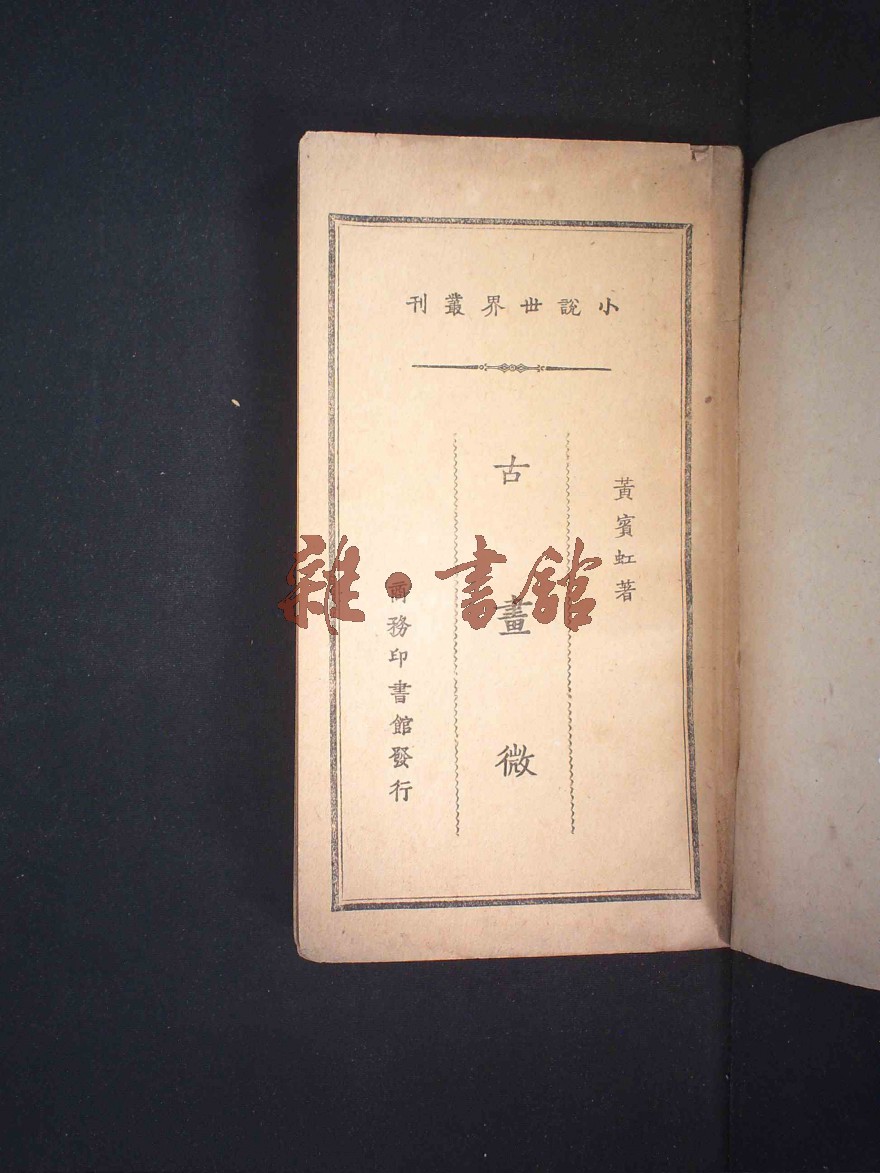 小說世界叢刊
黃賓虹著
古畫微
商務印書館發行
雜·書館